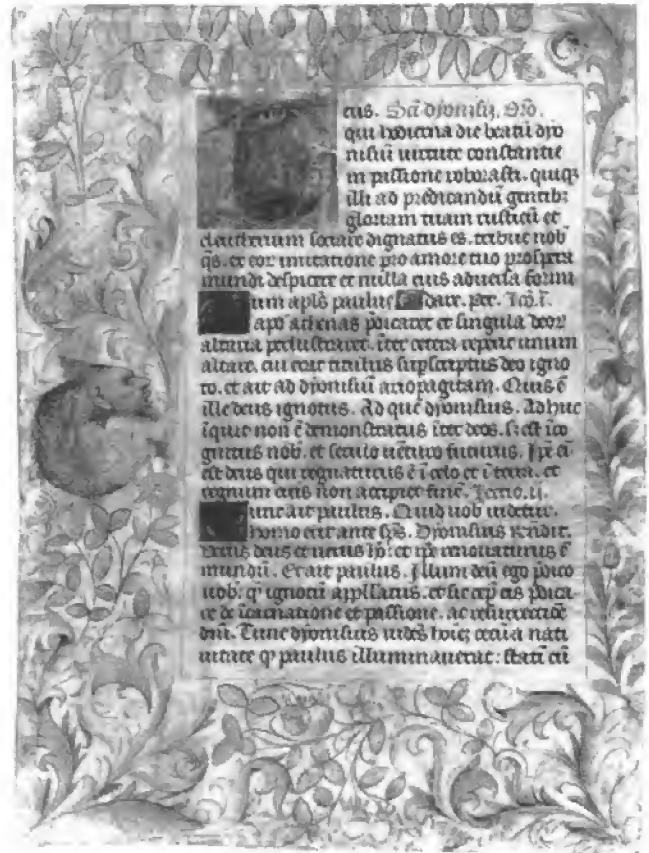 eus. Scī dyonisij. Orō.
qui hodierna die beatū dyo
nisiū uirtute constantie
in passione roborasti. quiqꝫ
illi ad predicandū gentibꝫ
gloriam tuam rusticū et
eleutherium sociare dignatus es. tribue nob
qs. et eoꝝ imitatione pro amore tuo prospera
mundi despicere et nulla eius aduersa formi
um aplūs paulus dare. per. Lcō.i.
apd̄ athenas p̄dicaret et singula deoꝝ
altaria perlustraret. iter cetera reperit unum
altare. cui erat titulus suꝑscriptus deo igno
to. et ait ad dyonisiū ariopagitam. Quis ē
ille deus ignotus. Ad quē dyonisius. Adhuc
īquit non ē demonstratus īter deos. sꝫ est īco
gnitus nob. et seculo uēturo futurus. Ipē ēī
est deus qui regnaturus ē ī celo et ī terra. et
regnum eius non accipiet finē. Lectio.ij.
unc ait paulus. Quid uob uidetur.
homo erit ante sps. Dyonisius rn̄dit.
uerus deus et uerus hō: et ip̄e renouaturus ē
mundū. Et ait paulus. Illum deū ego p̄dico
uob. qꝫ ignotū appllatis. et sic cep̄ eis p̄dica
re de īcarnatione et passione. ac resurrectiōe
dnī. Tunc dyonisius uidēs hoīeꝫ cecū a nati
uitate qꝫ paulus illuminauerat: stati cū